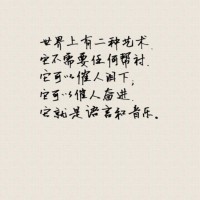 世界上有二种艺术.
它不需要任何帮衬.
它可以催人泪下,
它可以催人奋进.
它就是语言和音乐。